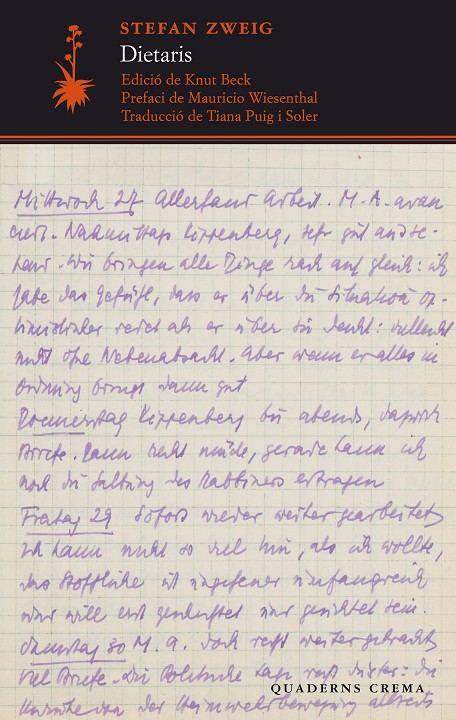 STEFAN ZWEIG
Dietaris
Edició de Knut Beck
Prefaci de Mauricio Wiesenthal
Traducció de Tiana Puig i Soler
Mittwoch 27 Allerhand Arbeit. M. A. avan
ciert. Nachmittags Kippenberg, sehr gut ausse-
hend. Wir bringen alle Dinge rasch auf gleich: ich
habe das Gefühl, dass er über die Situation op-
timistischer redet als er über sie denkt: vielleicht
nicht ohne Nebenabsicht. Aber wenn er alles in
Ordnung bringt dann gut
Donnerstag Kippenberg bis abends, dazwisch
Briefe. Dann recht müde, gerade kann ich
noch die des Rabbiners ertragen
Freitag 29 Sofort wieder weiter gearbeitet
Ich kann nicht so viel hin, als ich wollte,
das Stoffliche ist ungeheuer umfangreich
und will erst und gerichtet sein.
Samstag 30 M. A. doch recht weiter gebracht
Viel Briefe. die Politische Lage recht düster: die
von der Heimwehrbewegung allseits
QUADERNS CREMA